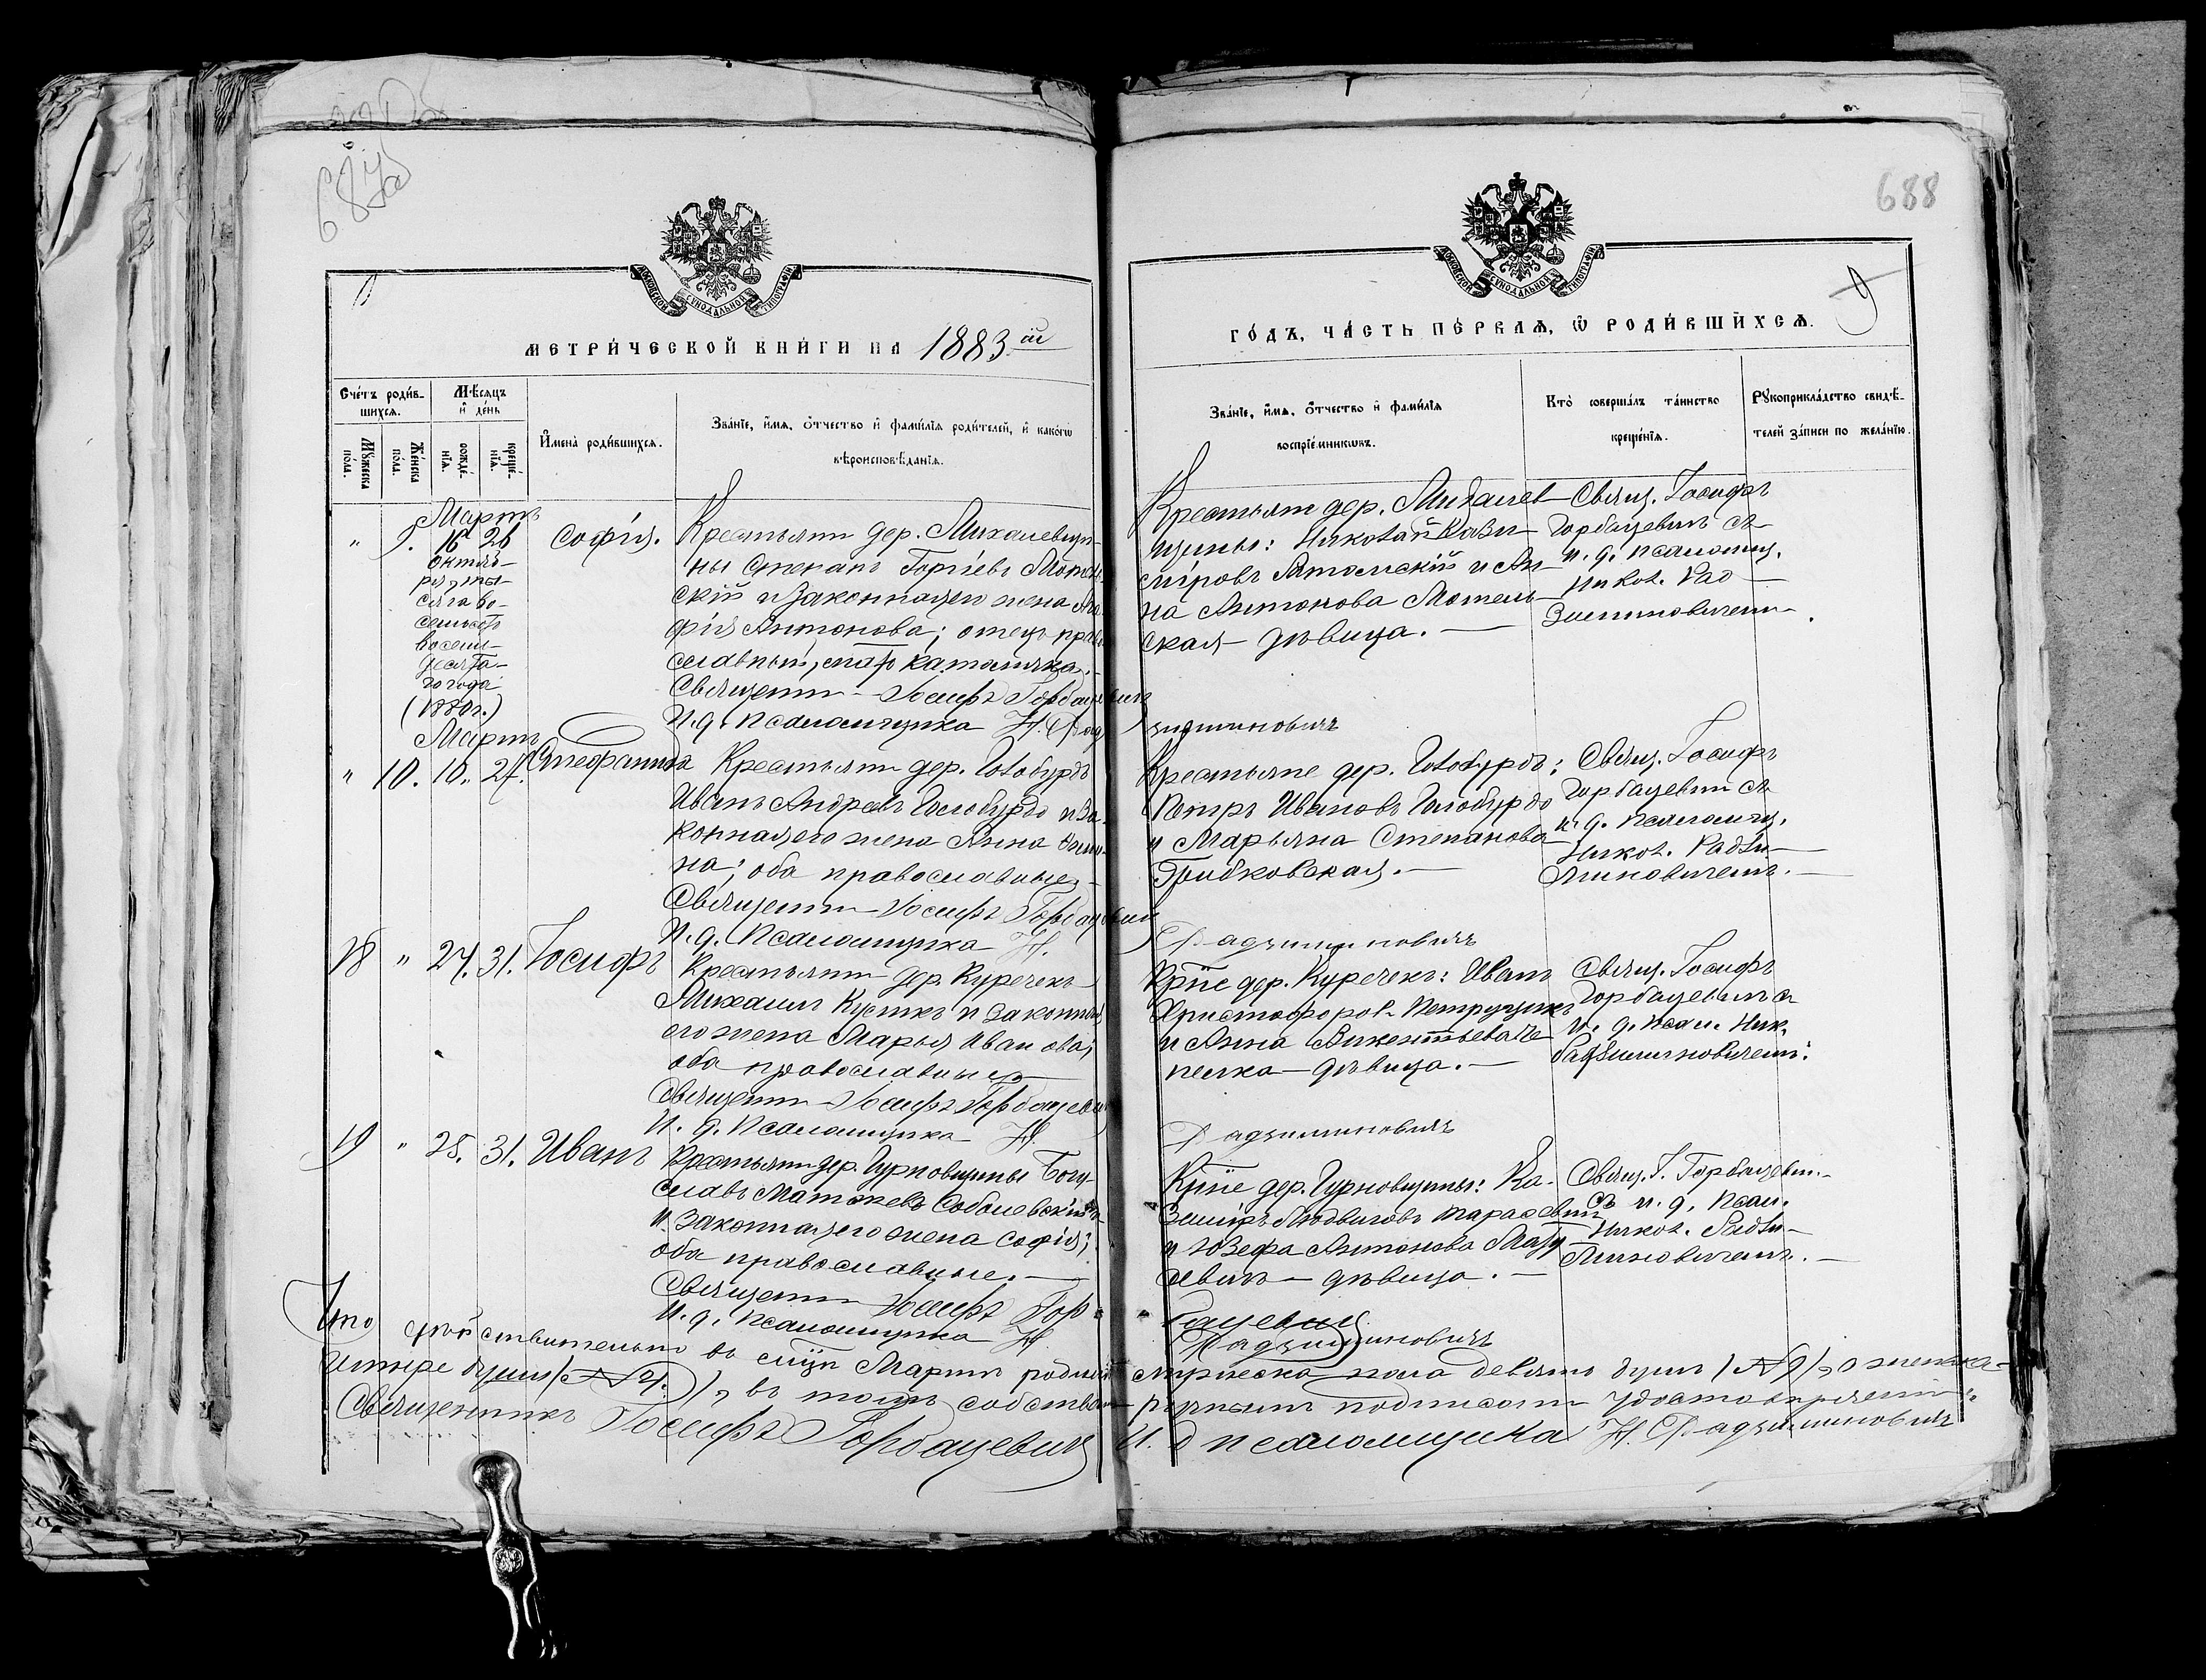 688
МОСКОВСКОЙ СѴНОДАЛЬНОЙ ТИПОГРАФІИ
МОСКОВСКОЙ СѴНОДАЛЬНОЙ ТИПОГРАФІИ
9
МЕТРИЧЕСКОЙ КНИГИ НА 1883ій
ГОДЪ, ЧАСТЬ ПЕРВАЯ, Ѡ РОДИВШИХСЯ.
Счетъ родив-
шихся.
Мужеска пола.
Женска пола.
Мѣсяцъ
и день
рожде-
нія.
креще-
нія.
Имена родившихся.
Званіе, имя, отчество и фамилія родителей, и какогѡ
вѣроисповѣданія.
Званіе, имя, отчество и фамилія
воспріемникѡвъ.
Кто совершалъ таинство
крещенія.
Рукоприкладство свидѣ-
телей записи по желанію.
Мартъ
" 9. 16 26
Октяб-
ря тыся-
ча во-
семьсотъ
восемь-
десята-
го года
(1880г.)
Софія.
Крестьянин дер. Михалевщи-
ны Степанъ Георгіевъ Мотель-
скій и законная его жена
фія Антонова; отецъ право-
славный, мать католичка.
Священникъ Іосифъ Горбацевичъ
И. д. псаломщика Н. Радзиминовичъ
Крестьяне дер. Михалев-
щины: Николай Кази-
міровъ и Ан-
на Антонова Мотель-
ская - дѣвица.
Свящ. Іосифъ
Горбацевичъ съ
и. д. псаломщ.
Никол. Рад-
зиминовичемъ.
Мартъ
" 10. 10. 27. Стефанида
Крестьянин дер. Голобурдъ
Иванъ Андреевъ Голобурдо и за-
конная его жена Анна
на; оба православные
Священникъ Іосифъ Горбацевичъ
И. д. Псаломщика Н. Радзиминовичъ
Крестьяне дер. Голобурдъ:
Петръ Ивановъ Голобурдо
и Марьяна Степанова
Грибковская.
Свящ. Іосифъ
Горбацевичъ съ
и. д. псаломщ.
Никол. Радзи-
миновичемъ.
18 " 24. 31. Іосифъ
Крестьянин дер. Куречекъ
Михаилъ и законная
его жена Марья Иванова;
оба православные
Священникъ Іосифъ Горбацевичъ
И. д. Псаломщика Н. Радзиминовичъ
Кр-не дер. Куречекъ: Иванъ
Христофоровъ
и Анна Викентьева
- дѣвица.
Свящ. Іосифъ
Горбацевичъ съ
и. д. псал. Ник.
Радзиминовичемъ.
19 " 25. 31. Иванъ
Крестьянин дер. Гурновщины Богу-
славъ Матѳеевъ Соболевскій
и законная его жена Софія;
оба православные.
Священникъ Іосифъ Горбацевичъ
И. д. псаломщика Н. Радзиминовичъ
Кр-не дер. Гурновщины: Ка-
зиміръ Людвиговъ Тарасевичъ
и Юзефа Антонова
- дѣвица.
Свящ. І. Горбацевичъ
съ и. д. псал.
Никол. Радзи-
миновичемъ.
Что дѣйствительно въ м-цѣ Мартѣ родилось мужеска пола девять душъ (№9), а женска-
четыре души (№4), въ томъ собственноручнымъ подписомъ удостовѣряемъ:
Священникъ Іосифъ Горбацевичъ И. д. псаломщика Н. Радзиминовичъ